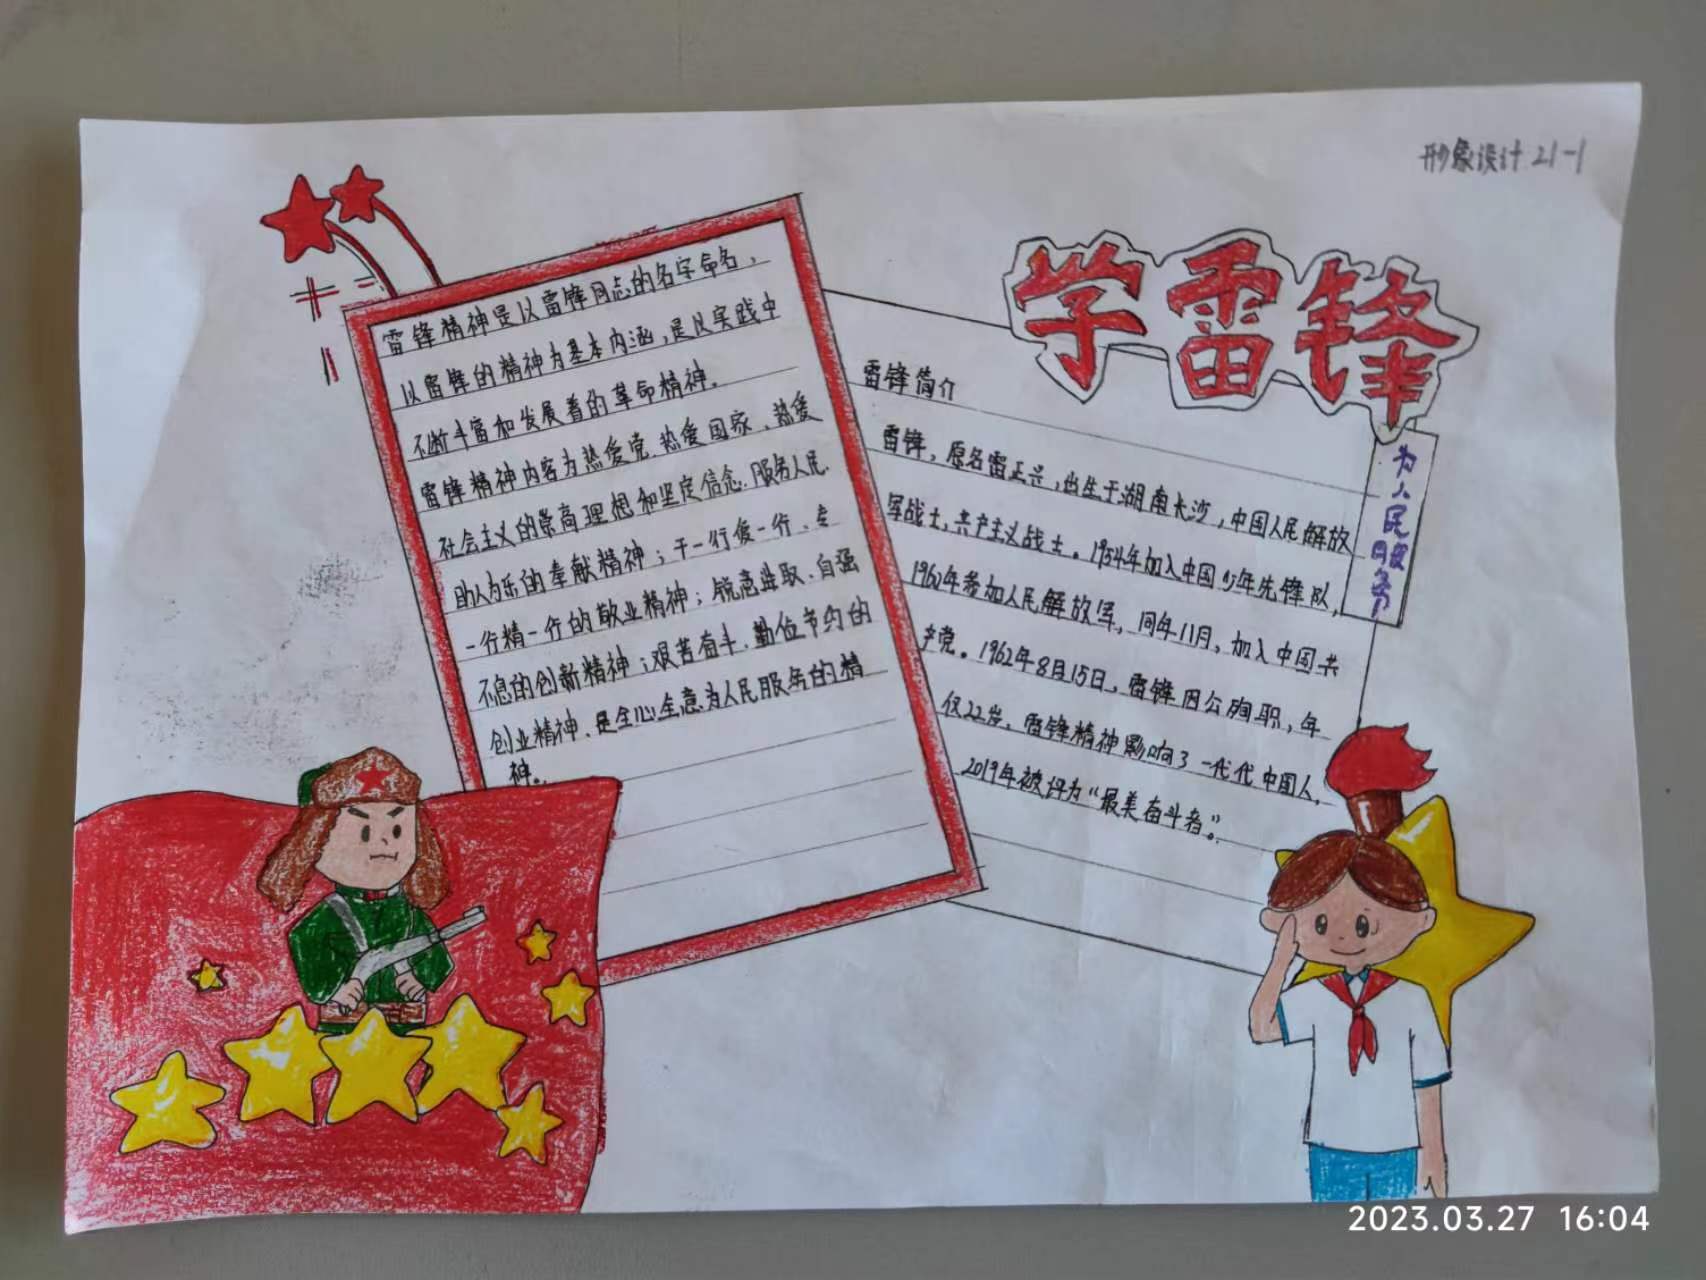 形象设计 21-1
学雷锋
为人民服务
雷锋精神是以雷锋同志的名字命名，
以雷锋的精神为基本内涵，是从实践中
不断丰富和发展着的革命精神。
雷锋精神内容为热爱党、热爱国家、热爱
社会主义的崇高理想和坚定信念、服务人民、
助人为乐的奉献精神；干一行爱一行、专
一行精一行的敬业精神；锐意进取、自强
不息的创新精神；艰苦奋斗、勤俭节约的
创业精神、是全心全意为人民服务的精
神。
雷锋简介
雷锋，原名雷正兴，出生于湖南长沙，中国人民解放
军战士，共产主义战士。1954年加入中国少年先锋队，
1960年参加人民解放军，同年11月，加入中国共
产党。1962年8月15日，雷锋因公殉职，年
仅22岁，雷锋精神影响了一代代中国人，
2019年被评为“最美奋斗者”。
2023.03.27 16:04